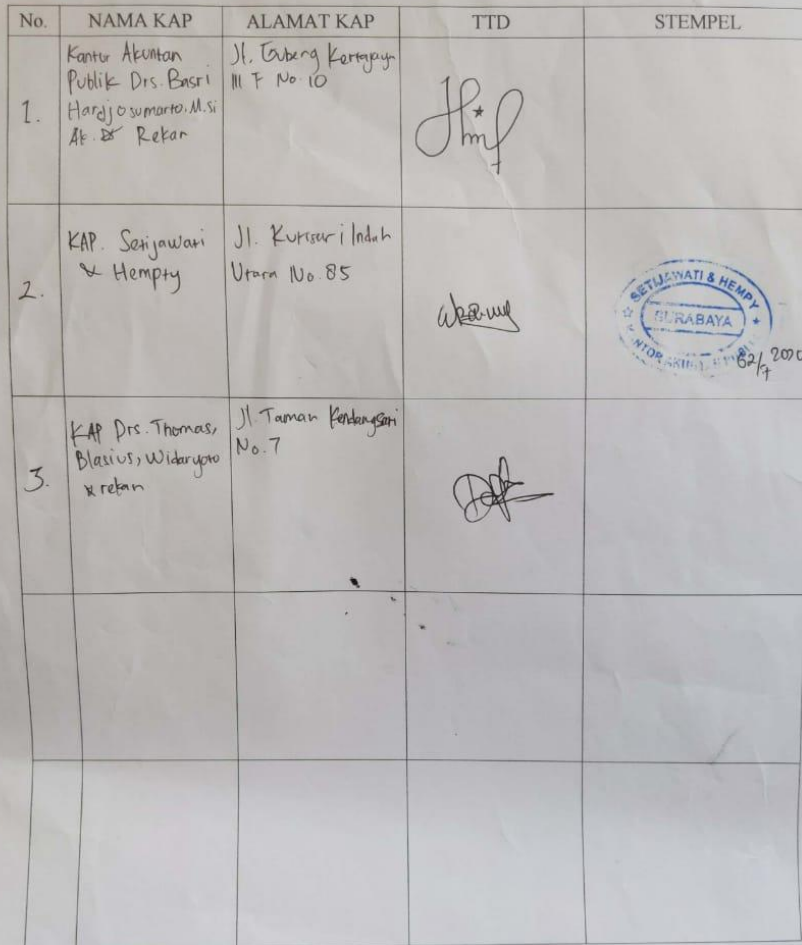 No. NAMA KAP ALAMAT KAP TTD STEMPEL
1.
Kantor Akuntan
Publik Drs. Basri
Hardjosumarto, M.Si
Ak. & Rekan
Jl. Gubeng Kertajaya
III F No. 10
2.
KAP. Setijawati
& Hempty
Jl. Kutisari Indah
Utara No. 85
SETIJAWATI & HEMPY
SURABAYA
2020
3.
KAP Drs. Thomas,
Blasius, Widaryoto
& rekan
Jl. Taman Kendangsari
No. 7